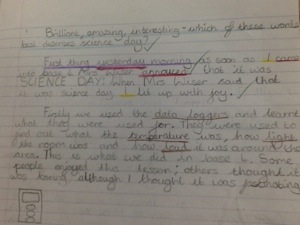 Brilliant, amazing, interesting - which of these words
best describes science day?
First thing yesterday morning as soon as I came
into base 6 Mrs Wiser annouced that it was
SCIENCE DAY! When Mrs Wiser said that
it was science day I lit up with joy.
Firstly we used the data loggers and learnt
what they were used for. They were used to
find out what the temperature was, how light
the room was and how loud it was around the
area. This is what we did in base 6. Some
people enjoyed this lesson; others thought it
was boring although I thought it was fascinating